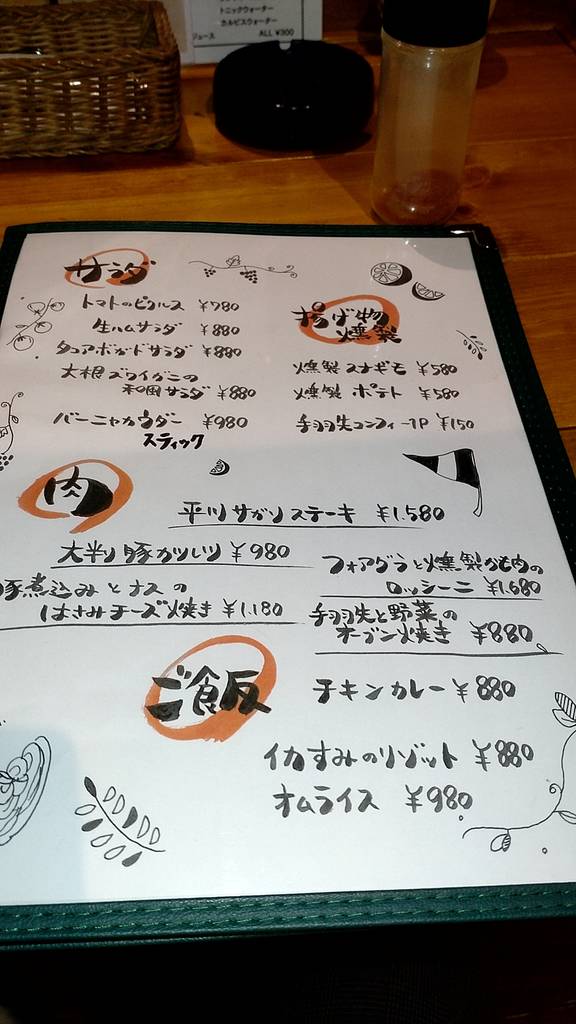 トニックウォーター
カルピスウォーター
ジュース ALL ¥300
サラダ
トマトのピクルス ¥780
生ハムサラダ ¥880
タコアボガドサラダ ¥880
大根ズワイガニの
和風サラダ ¥880
バーニャカウダー ¥980
スティック
揚げ物
燻製
燻製 スナギモ ¥580
燻製 ポテト ¥580
手羽先コンフィー1P ¥150
肉
平川サガリステーキ ¥1.580
大判り豚カツレツ ¥980
豚煮込みとナスの
はさみチーズ焼き ¥1.180
フォアグラと燻製クジラ肉の
ロッシーニ ¥1.680
手羽先と野菜の
オーブン焼き ¥880
ご飯
チキンカレー ¥880
イカすみのリゾット ¥880
オムライス ¥980